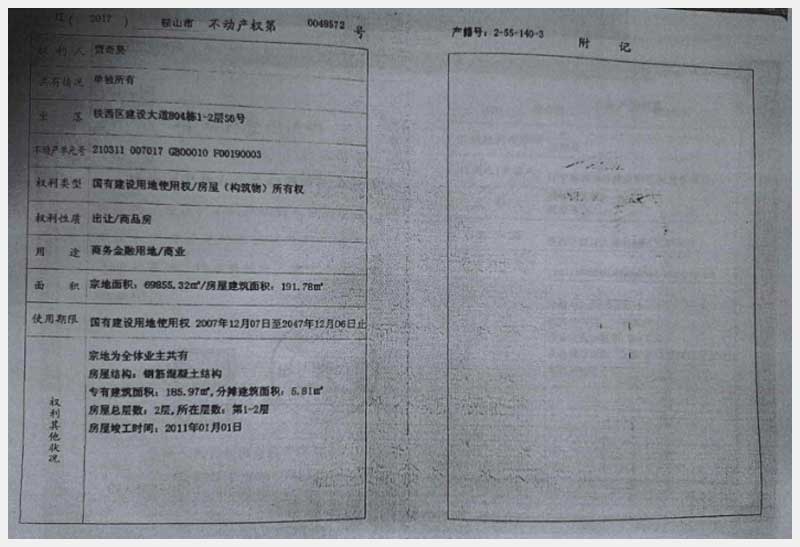 辽( 2017 ) 鞍山市 不动产权第 0049572 号
权利人
共有情况 单独所有
坐落 铁西区建设大道804栋1-2层S6号
不动产单元号 210311 007017 GB00010 F00190003
权利类型 国有建设用地使用权/房屋(构筑物)所有权
权利性质 出让/商品房
用途 商务金融用地/商业
面积 宗地面积:69855.32㎡/房屋建筑面积:191.78㎡
使用期限 国有建设用地使用权 2007年12月07日至2047年12月06日止
权利其他状况
宗地为全体业主共有
房屋结构:钢筋混凝土结构
专有建筑面积:185.97㎡,分摊建筑面积:5.81㎡
房屋总层数:2层,所在层数:第1-2层
房屋竣工时间:2011年01月01日
产籍号:2-55-140-3
附记